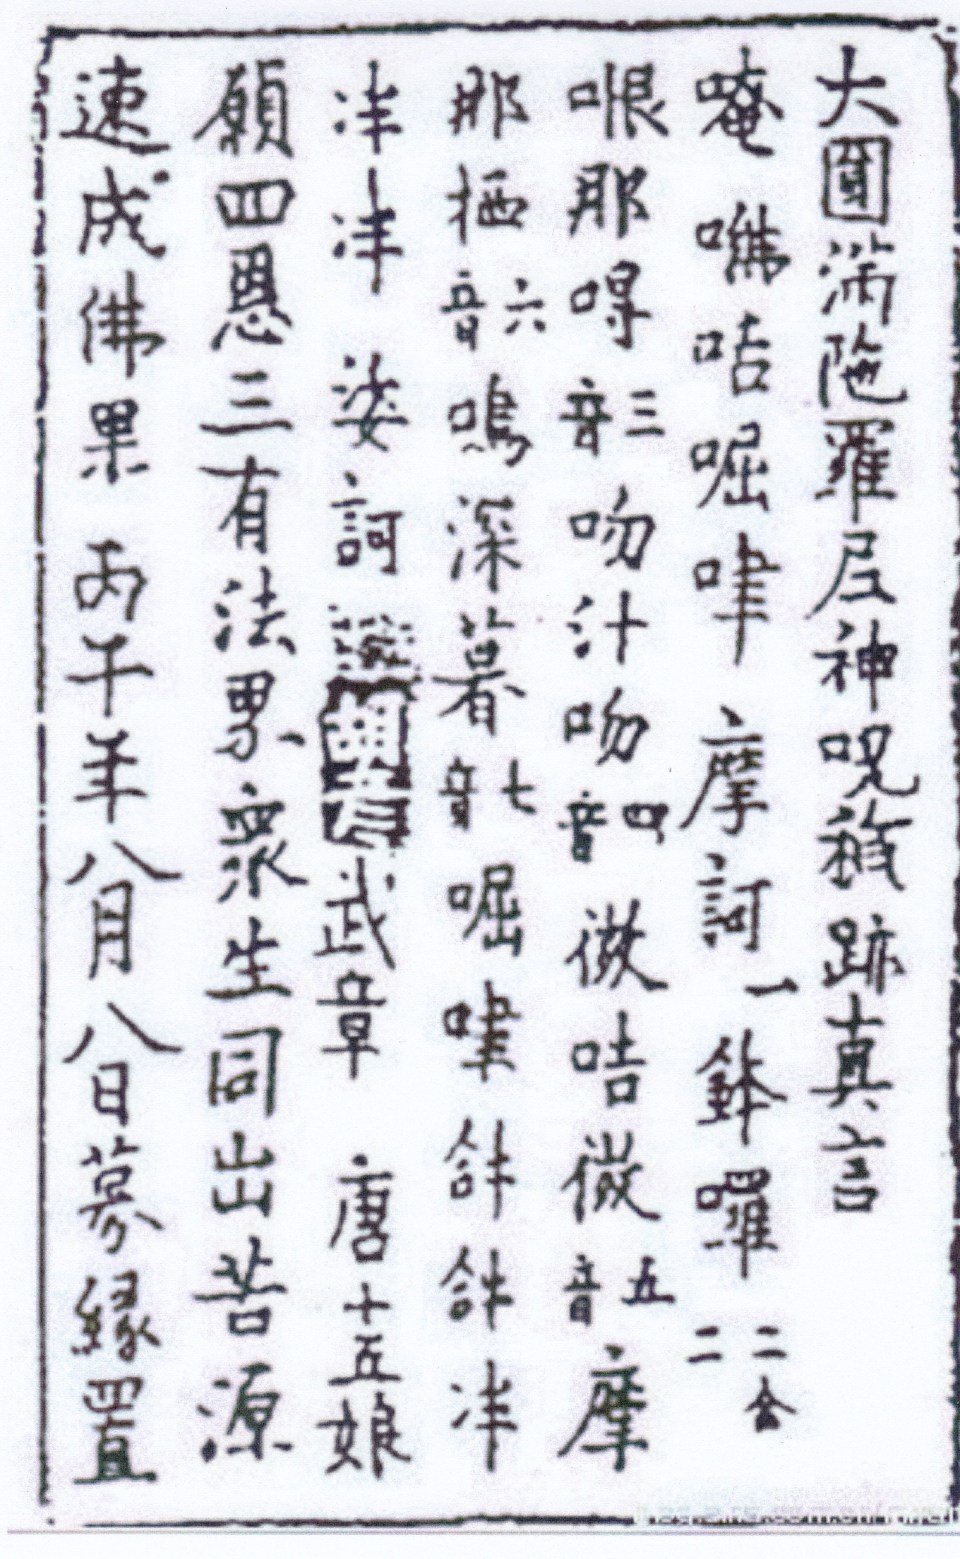 大圓滿陁羅尼神呪穢跡真言
唵㗌咭啒㖀 摩訶一 鉢囉 二合二
㖃那㖊音三 吻汁吻音四 㣲咭㣲音五 摩
那栖音六 嗚深暮音七 啒㖀 𤙖𤙖泮
泮泮 娑訶 武章 唐十五娘
願四恩三有法界衆生同出苦源
速成佛果 丙午年八月八日募緣置